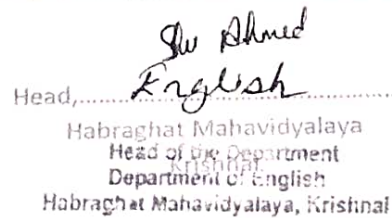 Ahmed
Head,.......English..........
Habraghat Mahavidyalaya
Krishnai
Head of the Department
Department of English
Habraghat Mahavidyalaya, Krishnai